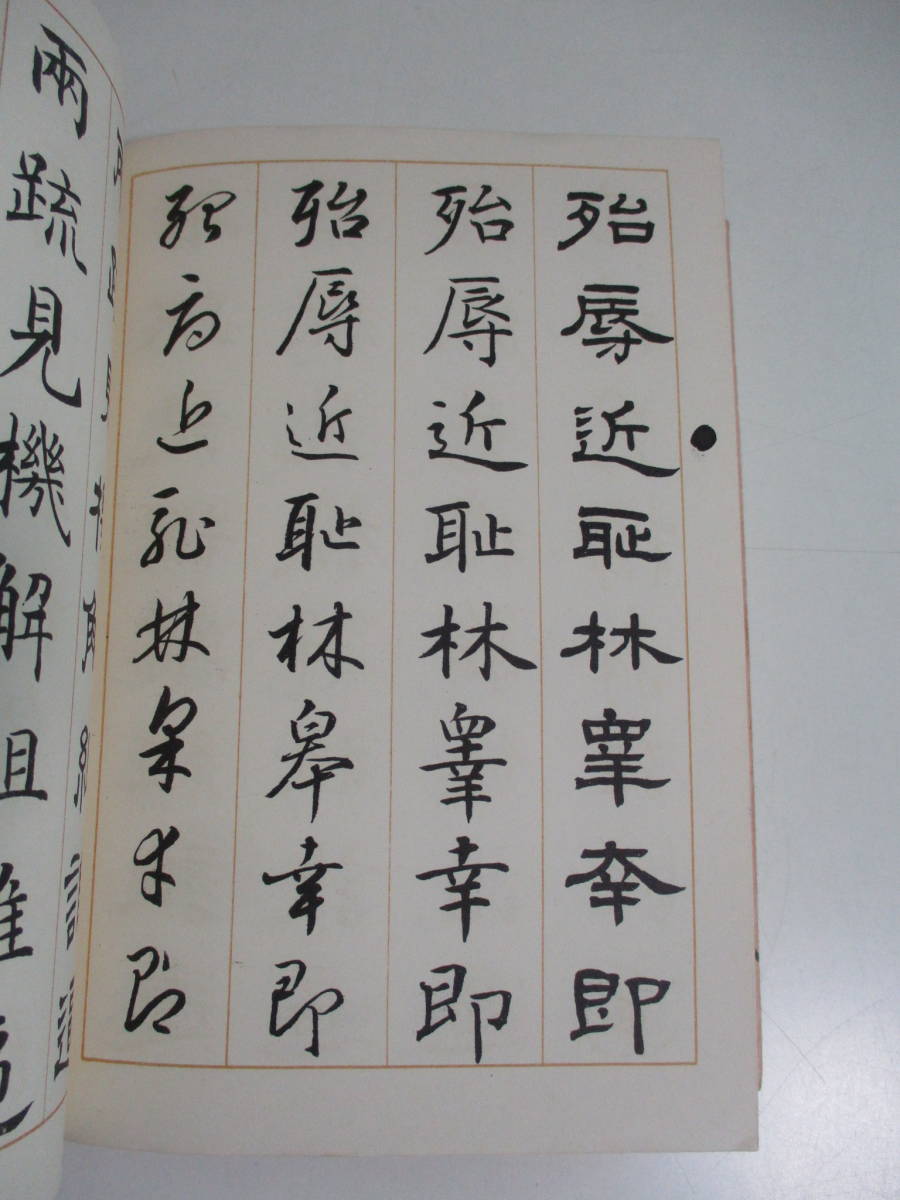 殆辱近恥林睪幸即
殆辱近恥林睪幸即
殆辱近恥林皋幸即
殆辱近恥林皋幸即
兩疏見機解組誰